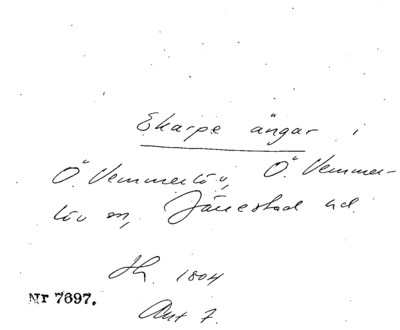 Ekarpe ängar i
Ö. Vemmerlöv, Ö. Vemmer-
löv sn, Järrestad hd
Jh. 1804
Akt 7.
Nr 7697.